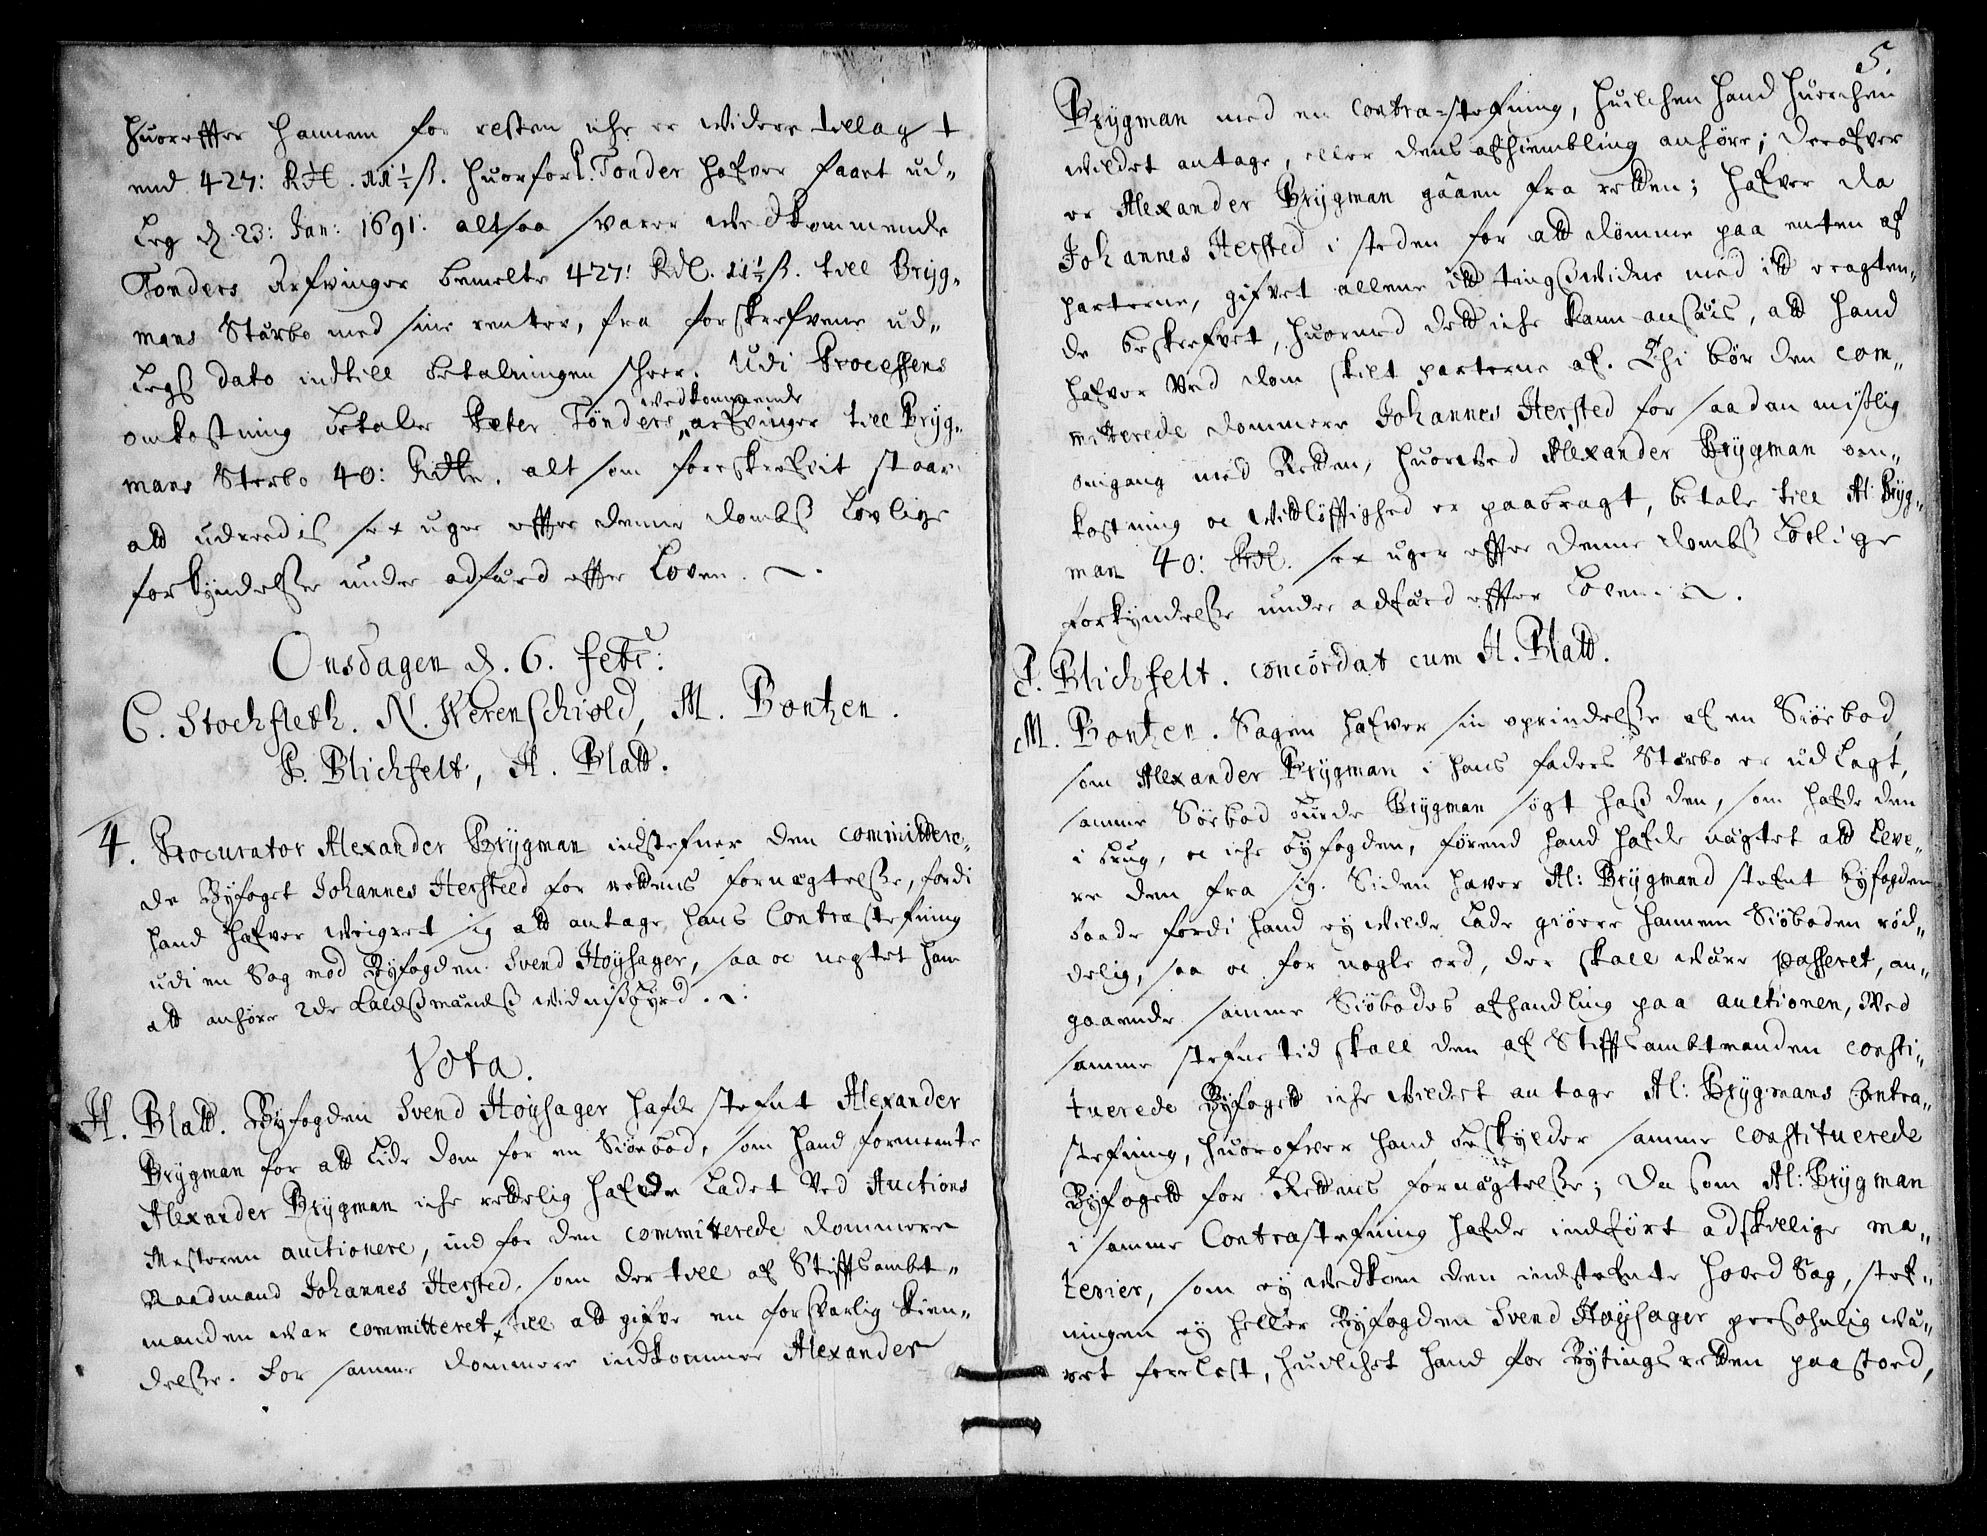 huoreffter hannem for resten iche er widere tillagt
end 427: Rdl. 11½ ß. huorfor P. Tonder hafver faaet ud-
leg d. 23: Jan: 1691. altsaa svarer wedkommende
Tonders Arfvinger bemelte 427: Rdl. 11½ ß. till Bryg-
mans Stærbo med sine renter, fra forskrefvene ud-
legs dato indtill betalningen scheer. Udi Processens
omkostning betaler Peter Tønders wedkommende arfvinger till Bryg-
mans Sterbo 40: Rdlr. alt som foreskrefvit staar
att udreedis sex uger effter denne dombs Lovlige
forkyndelsse under adfærd effter Loven.
Onsdagen d. 6. febr:
C. Stockfleth. N. Werenschiold, M. Bontzen.
P. Blichfelt, H. Blatt.
4. Procurator Alexander Brygman indstefner den committere-
de Byfoget Johannes Hersteed for rettens fornægtelsse, fordi
hand hafver weigret sig att antage hans Contrastefning
udi en Sag mod Byfogden Svend Høysager, saa oc negtet ham
att anhøre 2de Kaldsmænds widnisbyrd.
Vota.
H. Blatt. Byfogden Svend Høysager hafde stefnt Alexander
Brygman for att lide dom for en Siøebod, som hand formeente
Alexander Brygman iche rettelig hafde ladet ved Auctions
Mesteren auctionere, ind for den committerede dommere
Raadmand Johannes Hersted, som dertill af Stifftsambt-
manden war committeret, till att gifve en forsvarlig kien-
delsse. For samme dommere indkommer Alexander
5.
Brygman med en contra-stefning, huilchen hand huorchen
wildet antage, eller dens afhiembling anhøre; derofver
er Alexander Brygman gaaen fra retten; hafver da
Johannes Hersted i steden for att dømme paa enten af
parterne, gifvet allene itt tingswidne med itt eragten-
de beskrefvet, huormed dett iche kann ansees, att hand
hafver ved dom skilt parterne af. Thi bør den com-
mitterede dommere Johannes Hersted for saadan mislig
omgang med Retten, huorved Alexander Brygman om-
kostning oc widtløfftighed er paabragt, betale till Al: Bryg-
man 40: Rdl. sex uger effter denne dombs Lovlige
forkyndelsse under adfærd effter Loven.
P. Blichfelt. concordat cum H. Blatt.
M. Bontzen. Sagen hafver sin oprindelsse af en Siøebod,
som Alexander Brygman i hans faders Stærbo er udlagt,
samme Søebod burde Brygman søgt hos den, som hafde den
i brug, oc iche byfogden, førend hand hafde nægtet att leve-
re den fra sig. Siden haver Al: Brygmand stefnt byfogden
baade fordi hand ey wilde lade giøre hannem Siøboden rød-
delig, saa oc for nogle ord, der skall være passeret, an-
gaaende samme Siøbodes afhandling paa auctionen, ved
samme stefnetid skall den af Stifftsambtmanden consti-
tuerede Byfogett iche wildet antage Al: Brygmans Contra-
stefning, huorofver hand beskylder samme constituerede
Byfogett for Rettens fornægtelsse; Da som Al: Brygman
i samme Contrastefning hafde indført adskillige ma-
terier, som ey wedkom den indstefnte hoved Sag, stef-
ningen ey heller Byfogden Svend Høysager persohnlig wæ-
ret forelest, huilchet hand for Bytings retten paastoed,